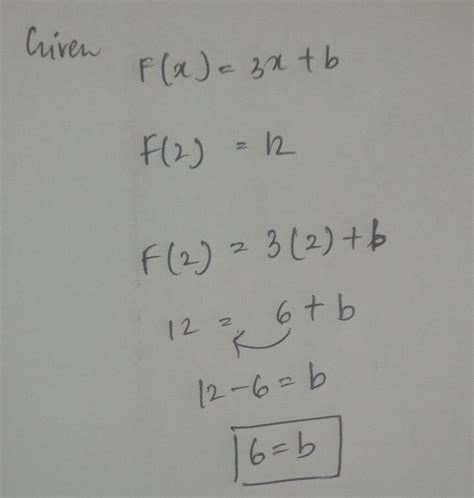 Given
F(x) = 3x + b
F(2) = 12
F(2) = 3(2) + b
12 = 6 + b
12 - 6 = b
6 = b